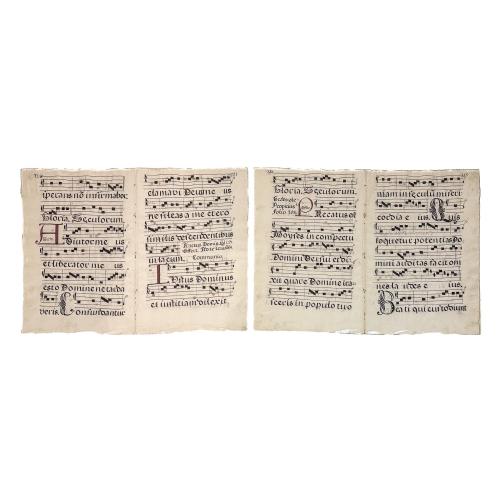 iperans nō infirmabor.
Gloria. Seculorum.
Adiutor me us
et liberator me us
esto Domine ne tarda
veris. Confundantur
clamavi De us me us
ne sileas a me et ero
similis descendentibus
in lacum. Communio.
Iustus Dominus
et iustitiam dilexit.
Gloria. Seculorum.
Precatus est
Moyses in conspectu
Domini Dei sui et di
xit quare Domine ira
sceris in populo tuo
niam in seculū miseri
cordia e ius. Quis
loquetur potentias Do
mini auditas faciet om
nes laudes e ius.
Beati qui custodiunt